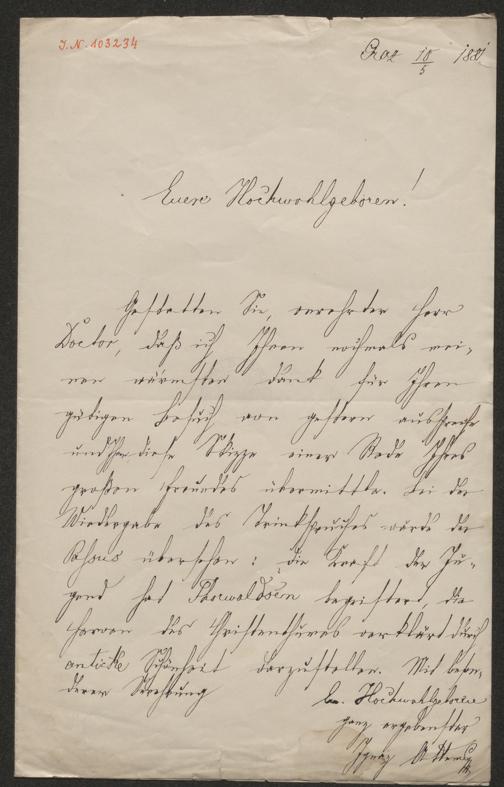 J.N. 103234
Graz 10/5 1881
Euere Hochwohlgeboren!
Gestatten Sie, verehrter Herr
Doctor, daß ich Ihnen nochmals mei-
nen wärmsten Dank für Ihren
gütigen Besuch von gestern ausspreche
und Ihnen diese Skizze einer Rede Ihres
großen Freundes übermittle. Bei der
Wiedergabe des Trinkspruches wurde der
Passus übersehen: die Kraft der Ju-
gend hat Thorwaldsen begeistert, die
Heroen des Christenthums verklärt durch
antike Schönheit darzustellen. Mit beson-
derer Verehrung
Eu. Hochwohlgeboren
ganz ergebenster
Ignaz Attems